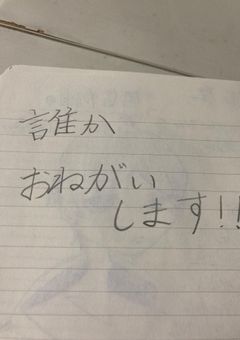 誰か
おねがい
します!!